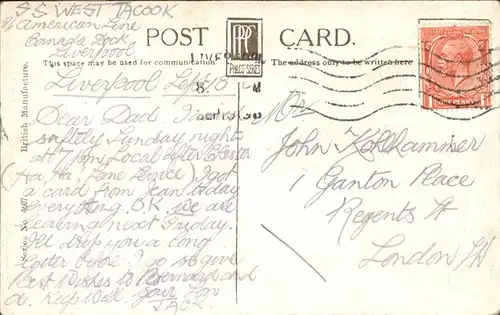 SS WEST TACOOK
c/o American Line
Dock
Liverpool
POST CARD.
This space may be used for communication
The address only to be written here
LIVERPOOL
PHILCO SERIES
ONE PENNY
British Manufacture.
Series No.
Liverpool Sept 15
Dear Dad I
safely Sunday night
at 7 pm Local after
(Ha, Ha! Service) I got
a card from Jean today
everything O.K. We are
leaving next Friday.
I'll drop you a long
letter before I go so give
Best Wishes to Bernard and
Keep Well Your Son
JACK.
Mr
John Kohlkammer
1 Ganton Place
Regents St
London W